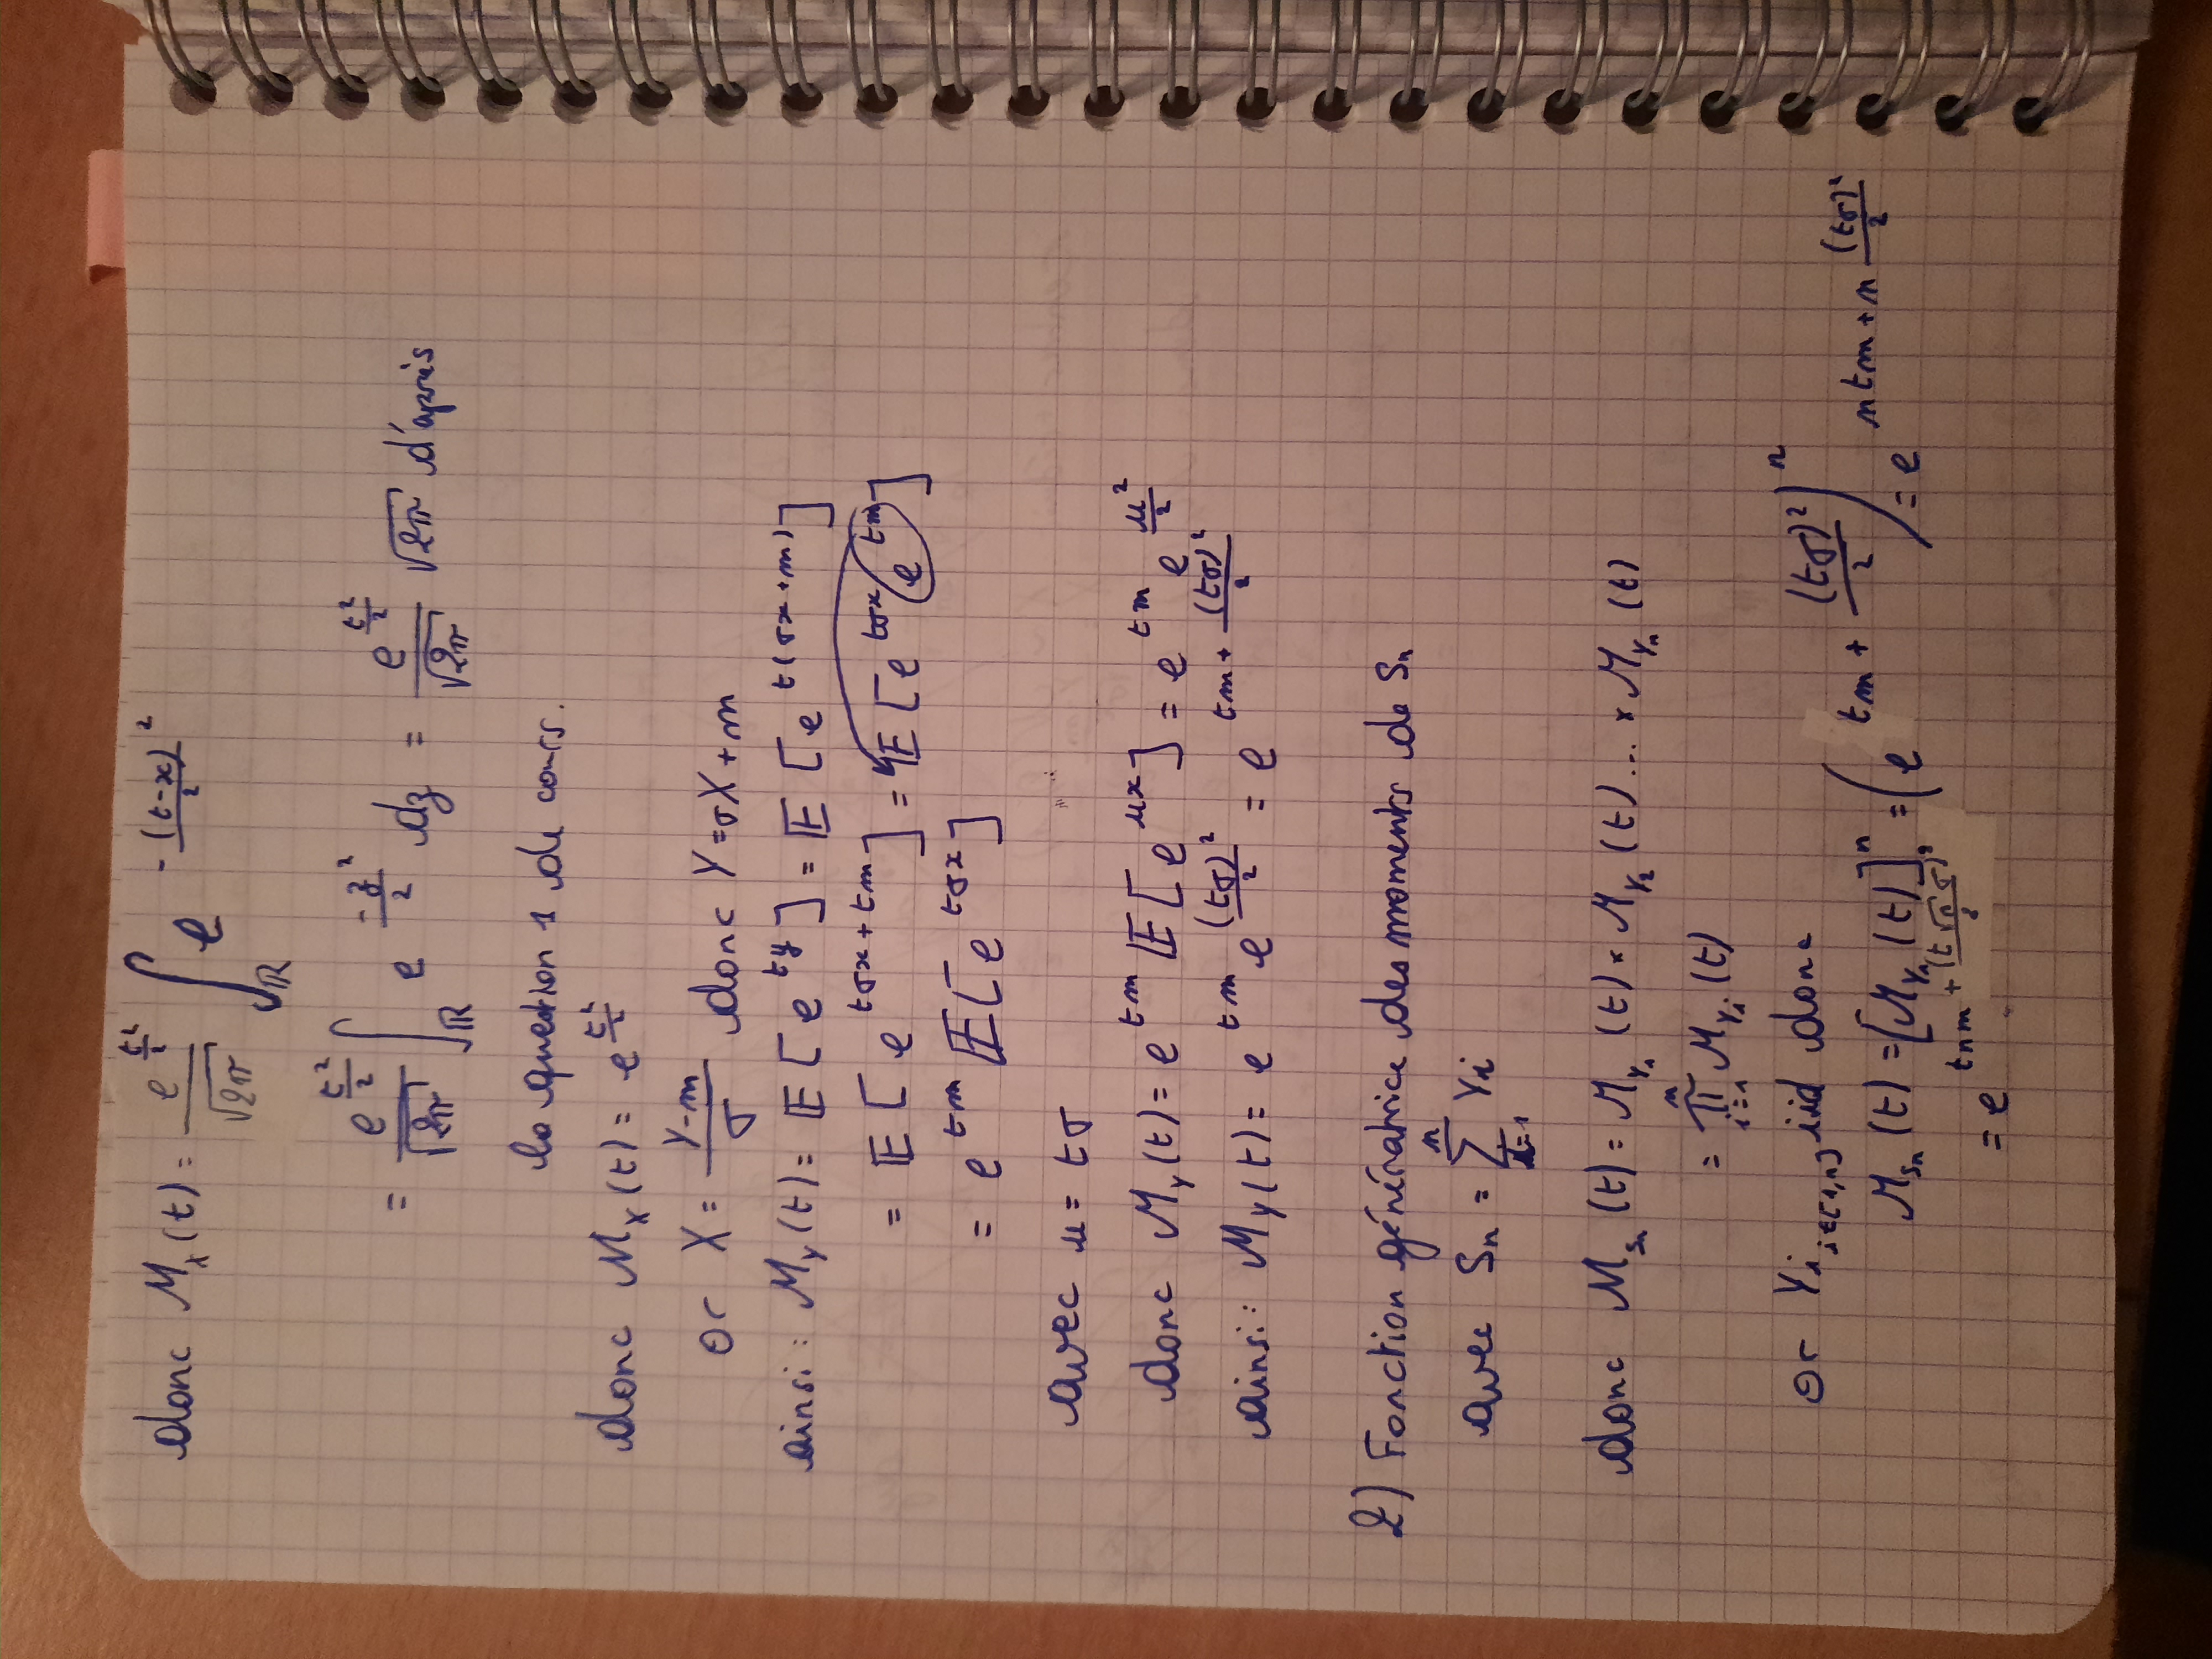 donc M_X(t) = e^{t²/2}/√2π ∫_ℝ e^{-(t-x)²/2}
= e^{t²/2}/√2π ∫_ℝ e^{-z²/2} dz = e^{t²/2}/√2π √2π d'après
la question 1 de cours.
donc M_X(t) = e^{t²/2}
or X = (Y-m)/σ donc Y = σX + m
ainsi : M_Y(t) = 𝔼[e^{ty}] = 𝔼[e^{t(σx+m)}]
= 𝔼[e^{tσx+tm}] = 𝔼[e^{tσx} e^{tm}]
= e^{tm} 𝔼[e^{tσx}]
avec u = tσ
donc M_Y(t) = e^{tm} 𝔼[e^{ux}] = e^{tm} e^{u²/2}
ainsi : M_Y(t) = e^{tm} e^{(tσ)²/2} = e^{tm + (tσ)²/2}
2) Fonction génératrice des moments de S_n
avec S_n = ∑_{i=1}^{n} Yi
donc M_{S_n}(t) = M_{Y_1}(t) × M_{Y_2}(t) ... × M_{Y_n}(t)
= ∏_{i=1}^{n} M_{Y_i}(t)
or Yi_{i∈[1,n]} iid donc
M_{S_n}(t) = [M_{Y_1}(t)]^n = (e^{tm + (tσ)²/2})^n = e^{ntm + n (tσ)²/2}
= e^{tnm + (t√n σ)²/2}